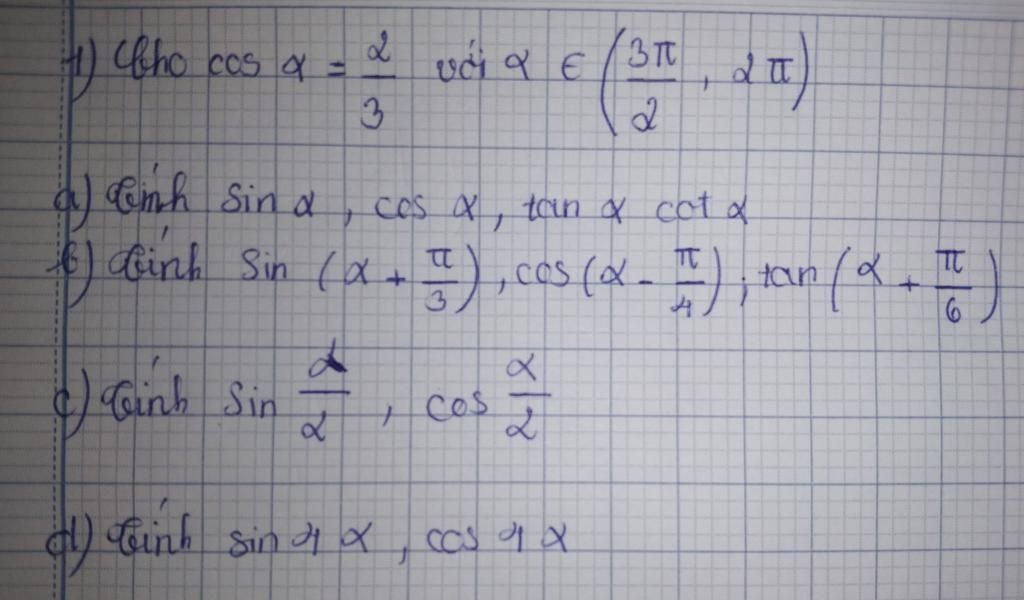 1) Cho cos α = 2/3 với α ∈ (3π/2, 2π)
a) Tính sin α, cos α, tan α cot α
b) Tính sin (α + π/3), cos(α - π/4); tan(α + π/6)
c) Tính sin α/2, cos α/2
d) Tính sin 4α, cos 4α